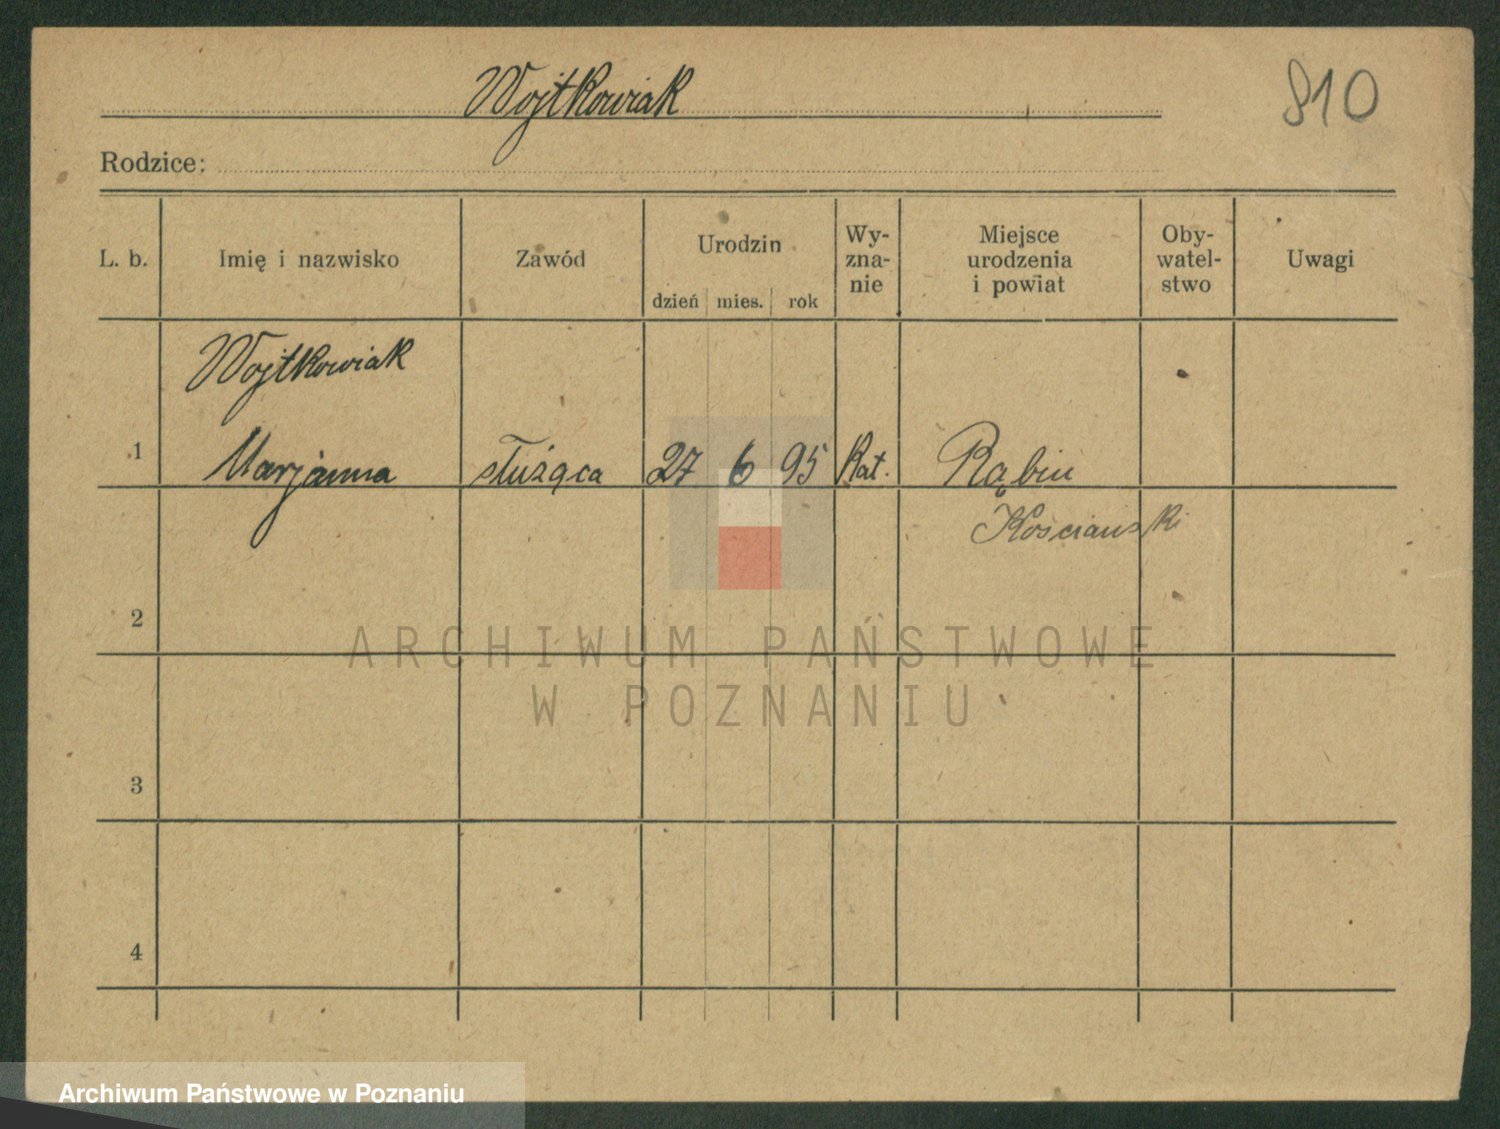 Wojtkowiak
810
Rodzice:
L. b. Imię i nazwisko Zawód Urodzin dzień mies. rok Wy-zna-nie Miejsce urodzenia i powiat Oby-watel-stwo Uwagi
Wojtkowiak
1 Marjanna służąca 27 6 95 Kat. Rąbiń
Kościański
2
ARCHIWUM PAŃSTWOWE
W POZNANIU
3
4
Archiwum Państwowe w Poznaniu